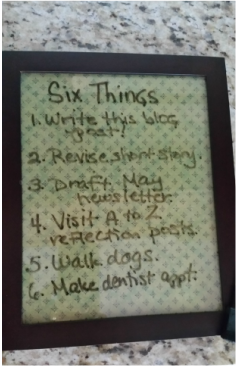 Six Things
1. Write this blog
post!
2. Revise short story.
3. Draft May
newsletter.
4. Visit A to Z
reflection posts.
5. Walk dogs.
6. Make dentist appt.